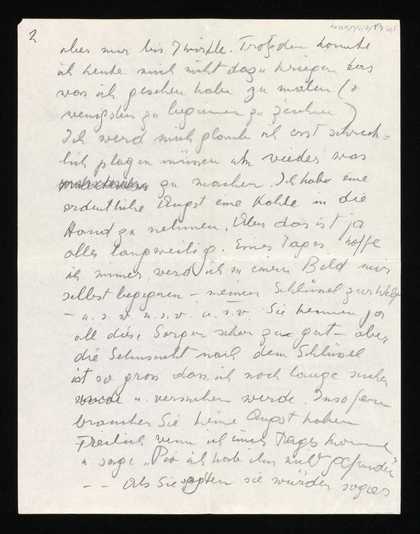 2
aber nur bis Zwirtle. Trotzdem konnte
ich heute mich nicht dazu kriegen das
was ich gesehen habe zu malen (o
wenigsten zu beginnen zu zeichnen)
Ich werd mich glaube ich erst schreck-
lich plagen müssen um wieder was
zu machen. Ich habe eine
ordentliche Angst eine Kohle in die
Hand zu nehmen. Aber das ist ja
alles langweilig. Eines Tages hoffe
ich immer werd ich in einem Bild mir
selbst begegnen – meinen Schlüssel zur Welt
– u.s.v. u.s.v. u.s.v. Sie kennen ja
all diese Sorgen schon zu gut – aber
die Sehnsucht nach dem Schlüssel
ist so gross dass ich noch lange suchen
u. versuchen werde. Insofern
brauchen Sie keine Angst haben
Freilich wenn ich eines Tages komme
u sage „ ich hab ihn nicht gefunden"
– – Als Sie sagten sie würden sogar